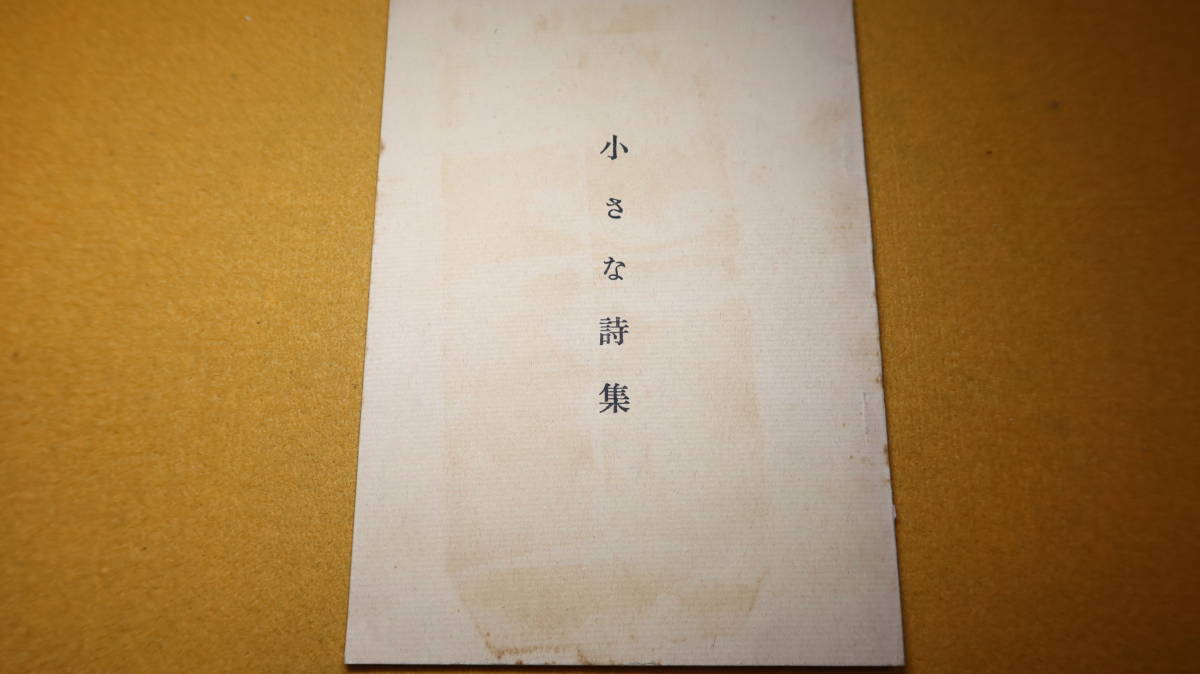 小さな詩集